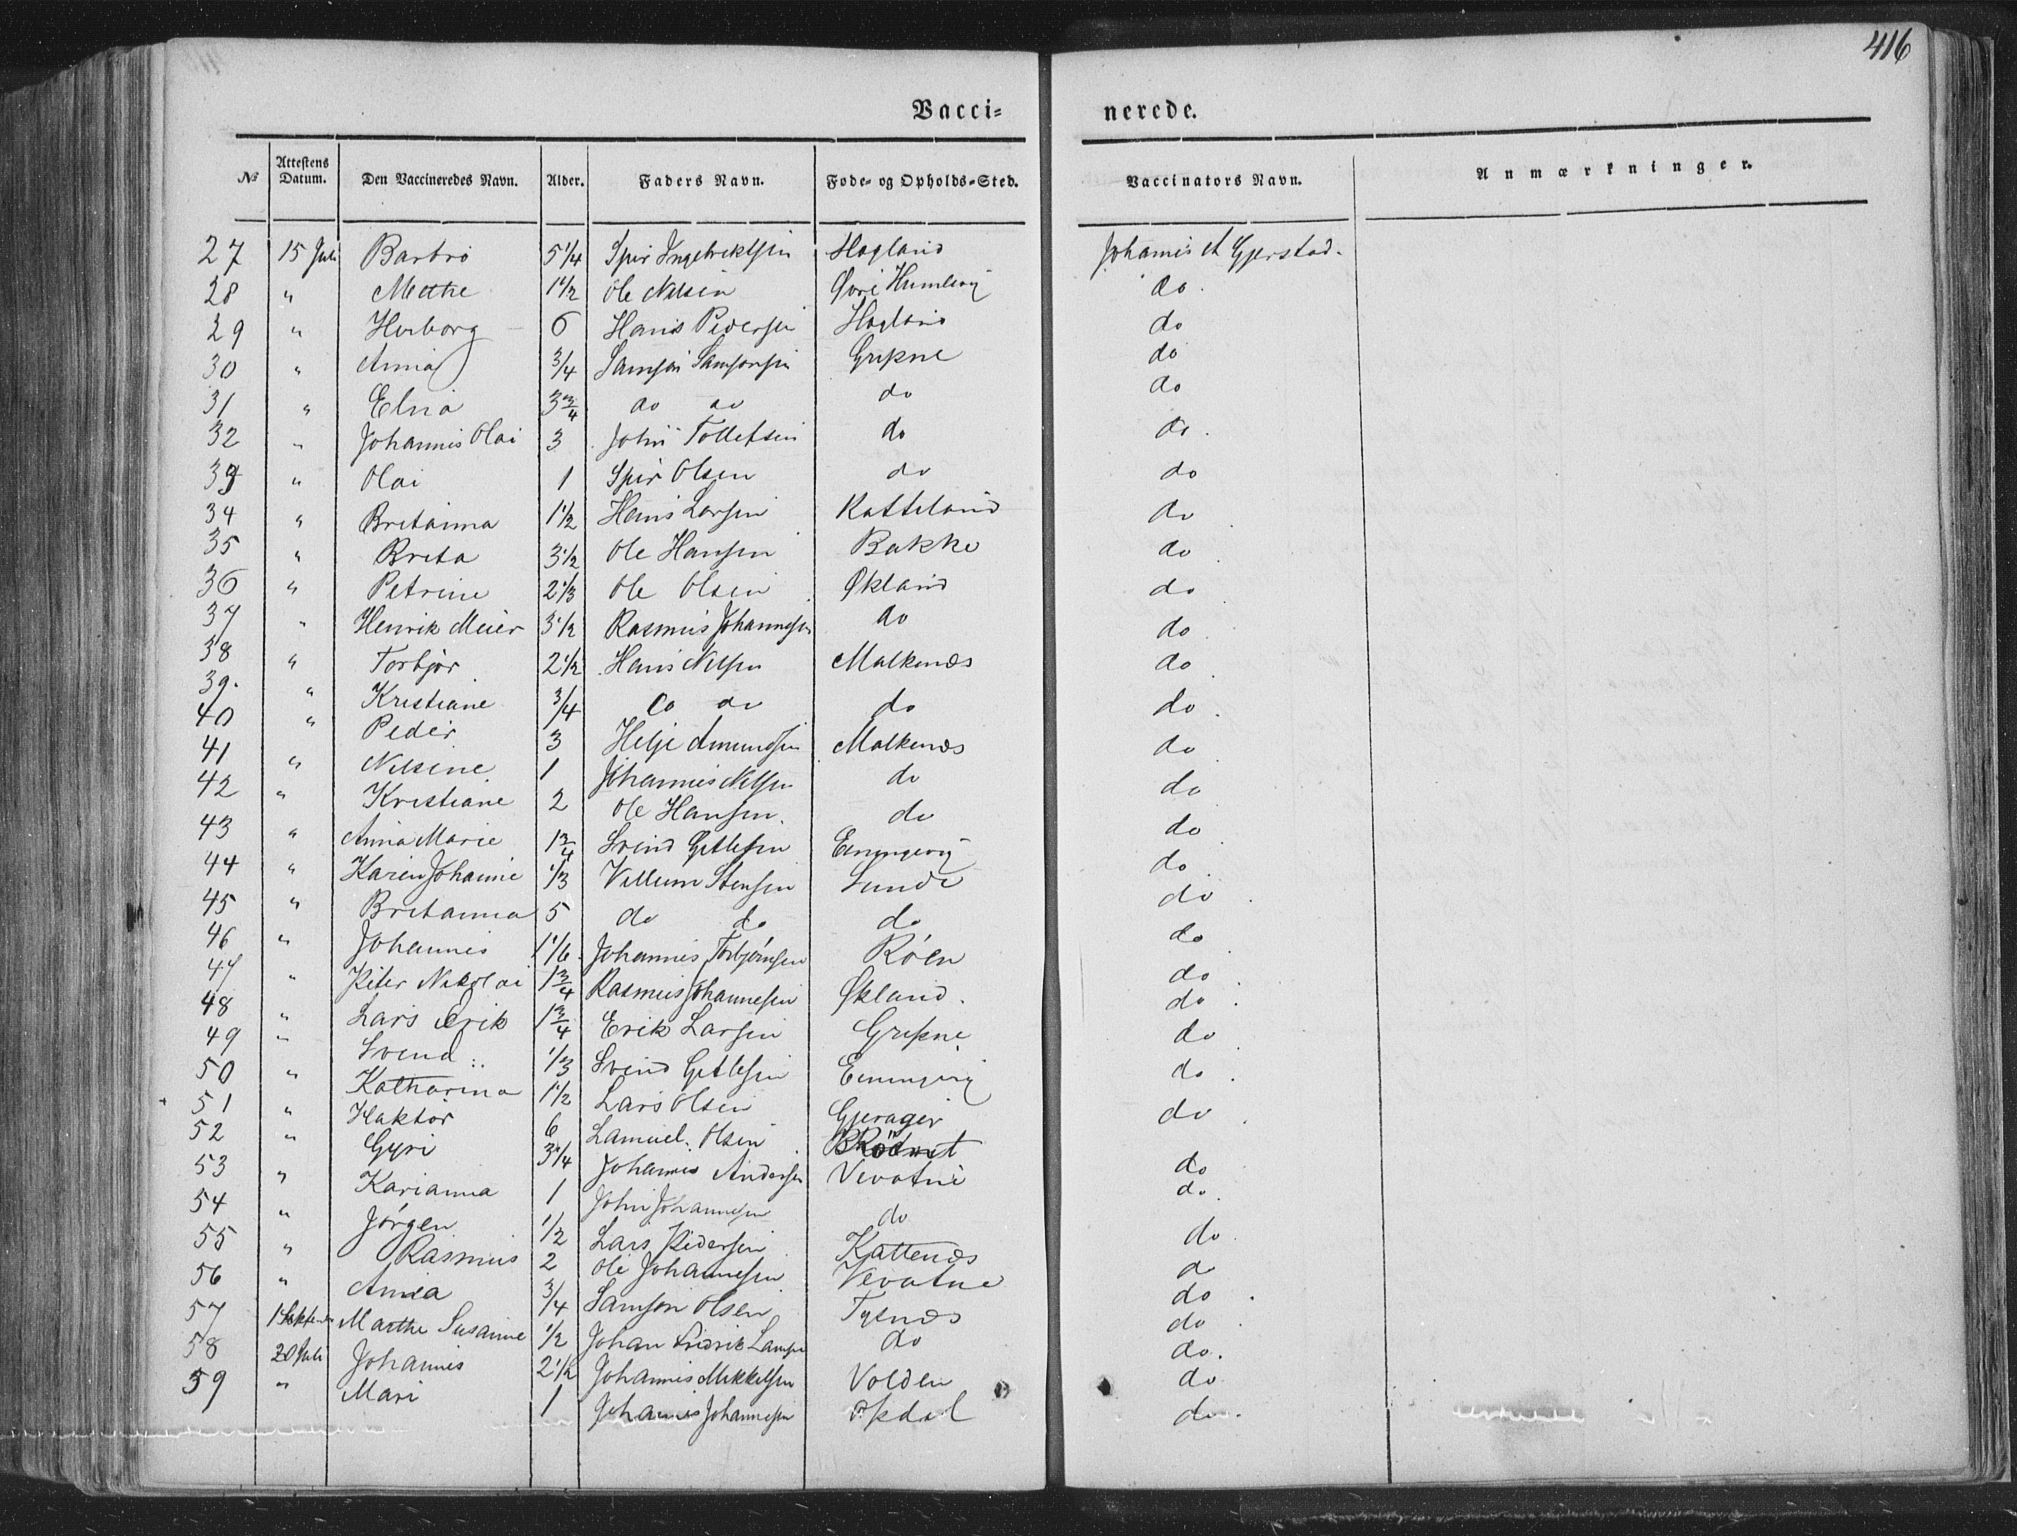 416
Vacci= nerede.
No Attestens Datum. Den Vaccineredes Navn. Alder. Faders Navn. Føde- og Opholds-Sted. Vaccinators Navn. Anmærkninger.
27 15 Juli Barbro 5 1/4 Hagland Johannis A Gjerstad.
28 " Methe 1 1/2 Ole Nilsen Øvre Humlevig do
29 " Herborg 6 Hans Pedersen Hagland do
30 " Anna 3/4 Samson Samsonsen Gripne do
31 " Elna 3 3/4 do do do do
32 " Johannis Olai 3 John Tollefsen do do
33 " Olai 1 Sjur Olsen do do
34 " Britanna 1 1/2 Hans Larsen Katteland do
35 " Brita 3 1/2 Ole Hansen Bakke do
36 " Petrine 2 1/3 Ole Olsen Økland do
37 " Henrik Meier 3 1/2 Rasmus Johannesen do do
38 " Torbjør 2 1/2 Hans Nilsen Malkenæs do
39. " Kristiane 3/4 do do do do
40 " Peder 3 Helje Amundsen Malkenæs do
41 " Nilsine 1 Johannes Nilsen do do
42 " Kristiane 2 Ole Hansen. do do
43 " Anna Marie 1 3/4 Svend Gitlesen do
44 " Karen Johanne 1/3 Villum Stensen Lunde do
45 " Britanna 5 do do do do
46 " Johannes 1 1/6 Johannes Torbjørnsen Røen do
47 " Peter Nikolai 1 3/4 Rasmus Johannesen Økland. do
48 " Lars Erik 1 3/4 Erik Larsen Gripne do
49 " Svend 1/3 Svend Gitlesen do
50 " Katharina 1 1/2 Lars Olsen Gjerager do
51 " Haktor 6 Samuel Olsen do
52 " Gyri 3 1/4 Johannes Andersen Vevatne do
53 " Karianna 1 John Johannesen do do
54 " Jørgen 1/2 Lars Pedersen Kattenæs do
55 " Rasmus 2 Ole Johannesen Vevatne do
56 " Anna 3/4 Samson Olsen Tysnæs do
57 Marthe Susanne 1/2 Johan Fridrik do do
58 20 Juli Johannis 2 1/2 Johannis Mikkelsen Volden do
59 " Mari 1 Johannis Johannesen Opdal do.